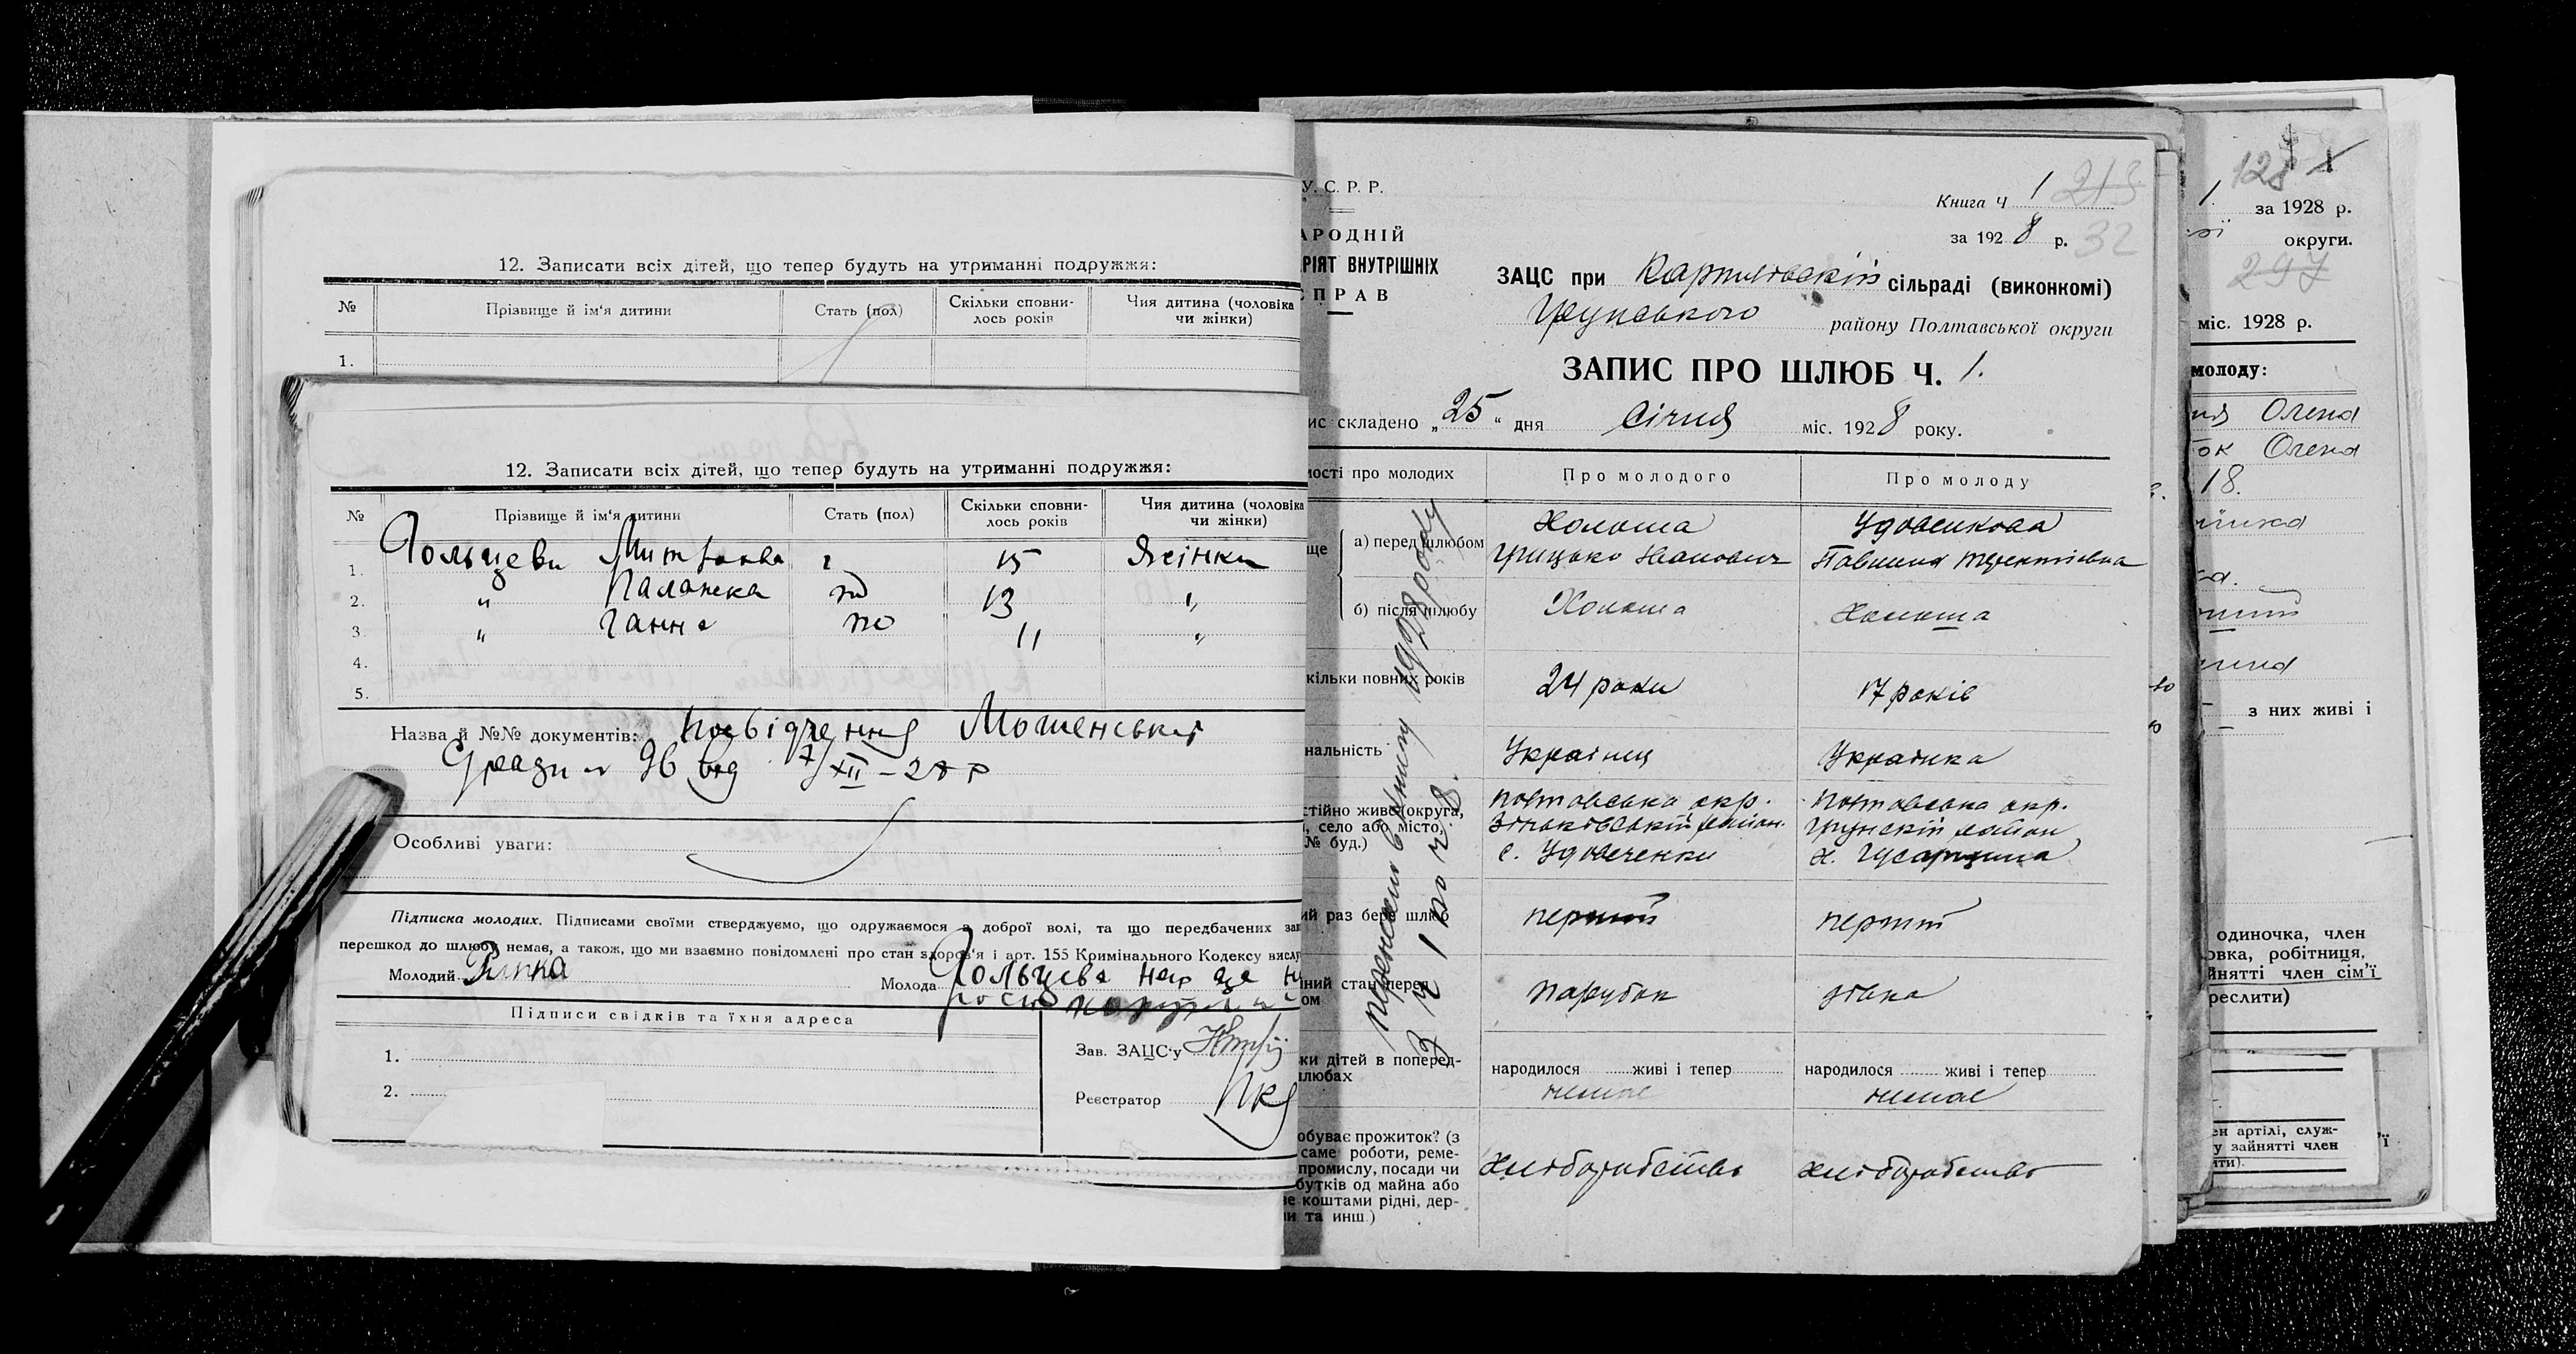 12. Записати всіх дітей, що тепер будуть на утриманні подружжя:
№ Прізвище й ім'я дитини Стать (пол) Скільки сповни- лось років Чия дитина (чоловіка чи жінки)
1.
12. Записати всіх дітей, що тепер будуть на утриманні подружжя:
№ Прізвище й ім'я дитини Стать (пол) Скільки сповни- лось років Чия дитина (чоловіка чи жінки)
1. Гольцеви 15 Жінки
2. " Палажка 13 "
3. " Ганна 11 "
4.
5.
Назва й №№ документів: посвідчення Мошенської
96 від 7/XII-28 р
Особливі уваги:
Підписка молодих. Підписами своїми стверджуємо, що одружаємося з доброї волі, та що передбачених
перешкод до шлюбу немає, а також, що ми взаємно повідомлені про стан здоров'я і арт. 155 Кримінального Кодексу
Молодий Молода Гольцева
Підписи свідків та їхня адреса
1.
2.
Зав. ЗАЦС'у
Реєстратор
У. С. Р. Р.
АРОДНІЙ
РІЯТ ВНУТРІШНІХ
СПРАВ
Книга Ч 1 213
за 1928 р. 32
ЗАЦС при сільраді (виконкомі)
Грунського району Полтавської округи
ЗАПИС ПРО ШЛЮБ Ч. 1.
ис складено „25" дня Січня міс. 1928 року.
мості про молодих Про молодого Про молоду
ще а) перед шлюбом Холоша Удовенкова
Грицько Іванович Павлина Терентіївна
б) після шлюбу Холоша Холоша
кільки повних років 24 роки 17 років
нальність Українец Українка
стійно живе (округа, Полтавська окр. Полтавська окр.
, село або місто, Зіньківський район. Грунскій район
№ буд.) с. Удовиченки х. Гусарщина
ий раз бере шлюб перший перший
ний стан перед
ом парубок дівка
ки дітей в поперед- народилося живі і тепер народилося живі і тепер
шлюбах немає немає
обуває прожиток? (з
саме роботи, реме-
промислу, посади чи хліборобство хліборобство
бутків од майна або
ве коштами рідні, дер-
и та инш.)
128
1. за 1928 р.
округи.
297
міс. 1928 р.
молоду:
Олена
ок Олена
18.
з них живі і
одиночка, член
овка, робітниця,
йнятті член сім'ї
реслити)
ен артілі, служ-
у зайнятті член
ити).